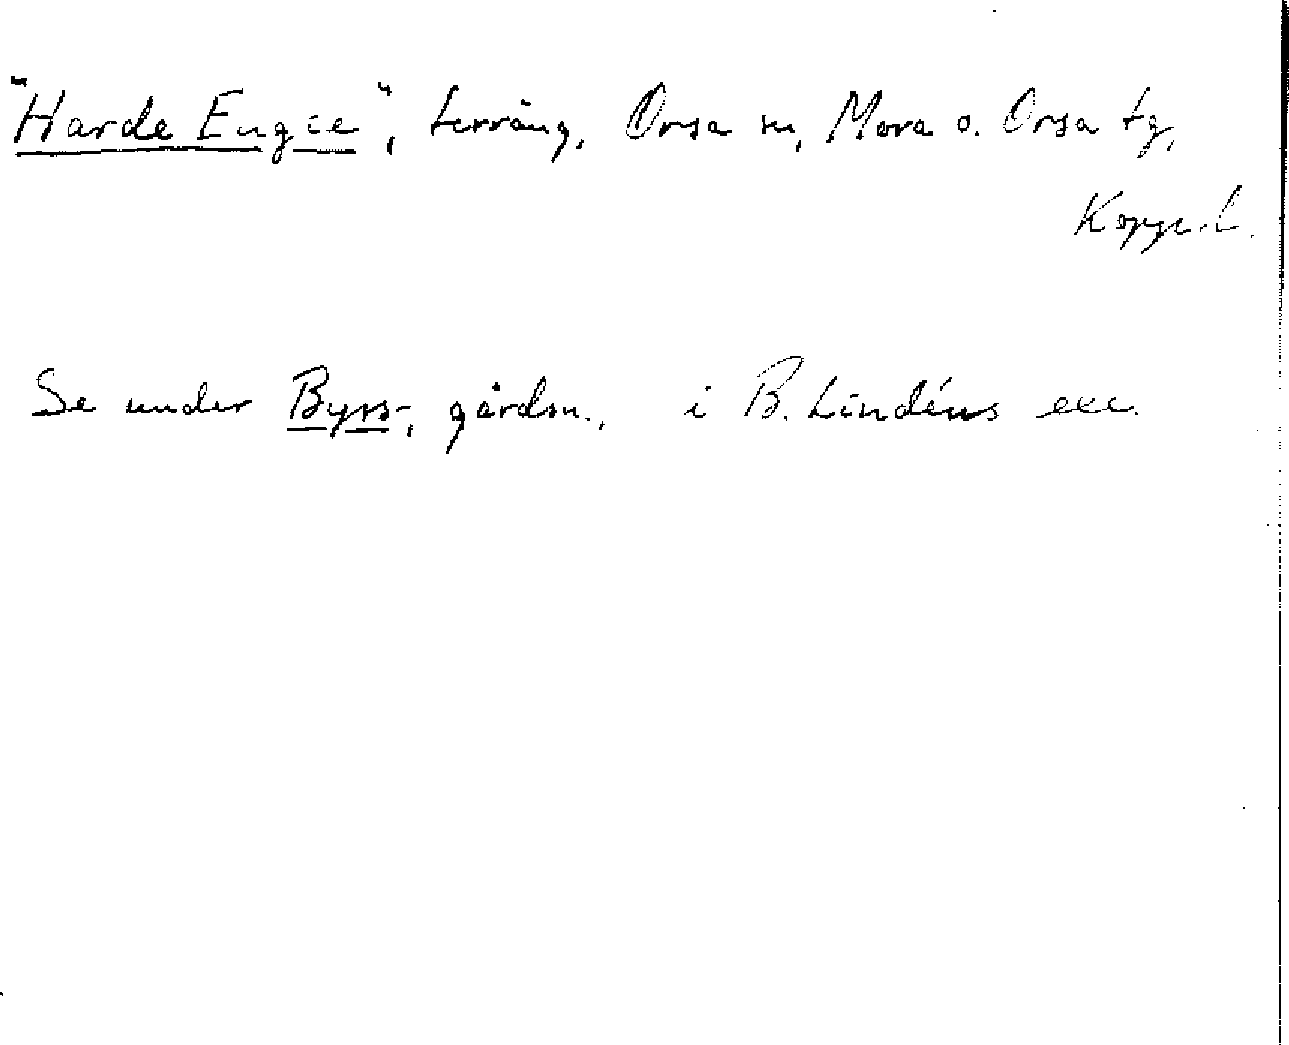 "Harde Engie", terräng, Orsa sn, Mora o. Orsa tg,
Kopp. l.
Se under Byss-, gårdsn., i B. Lindéns exc.